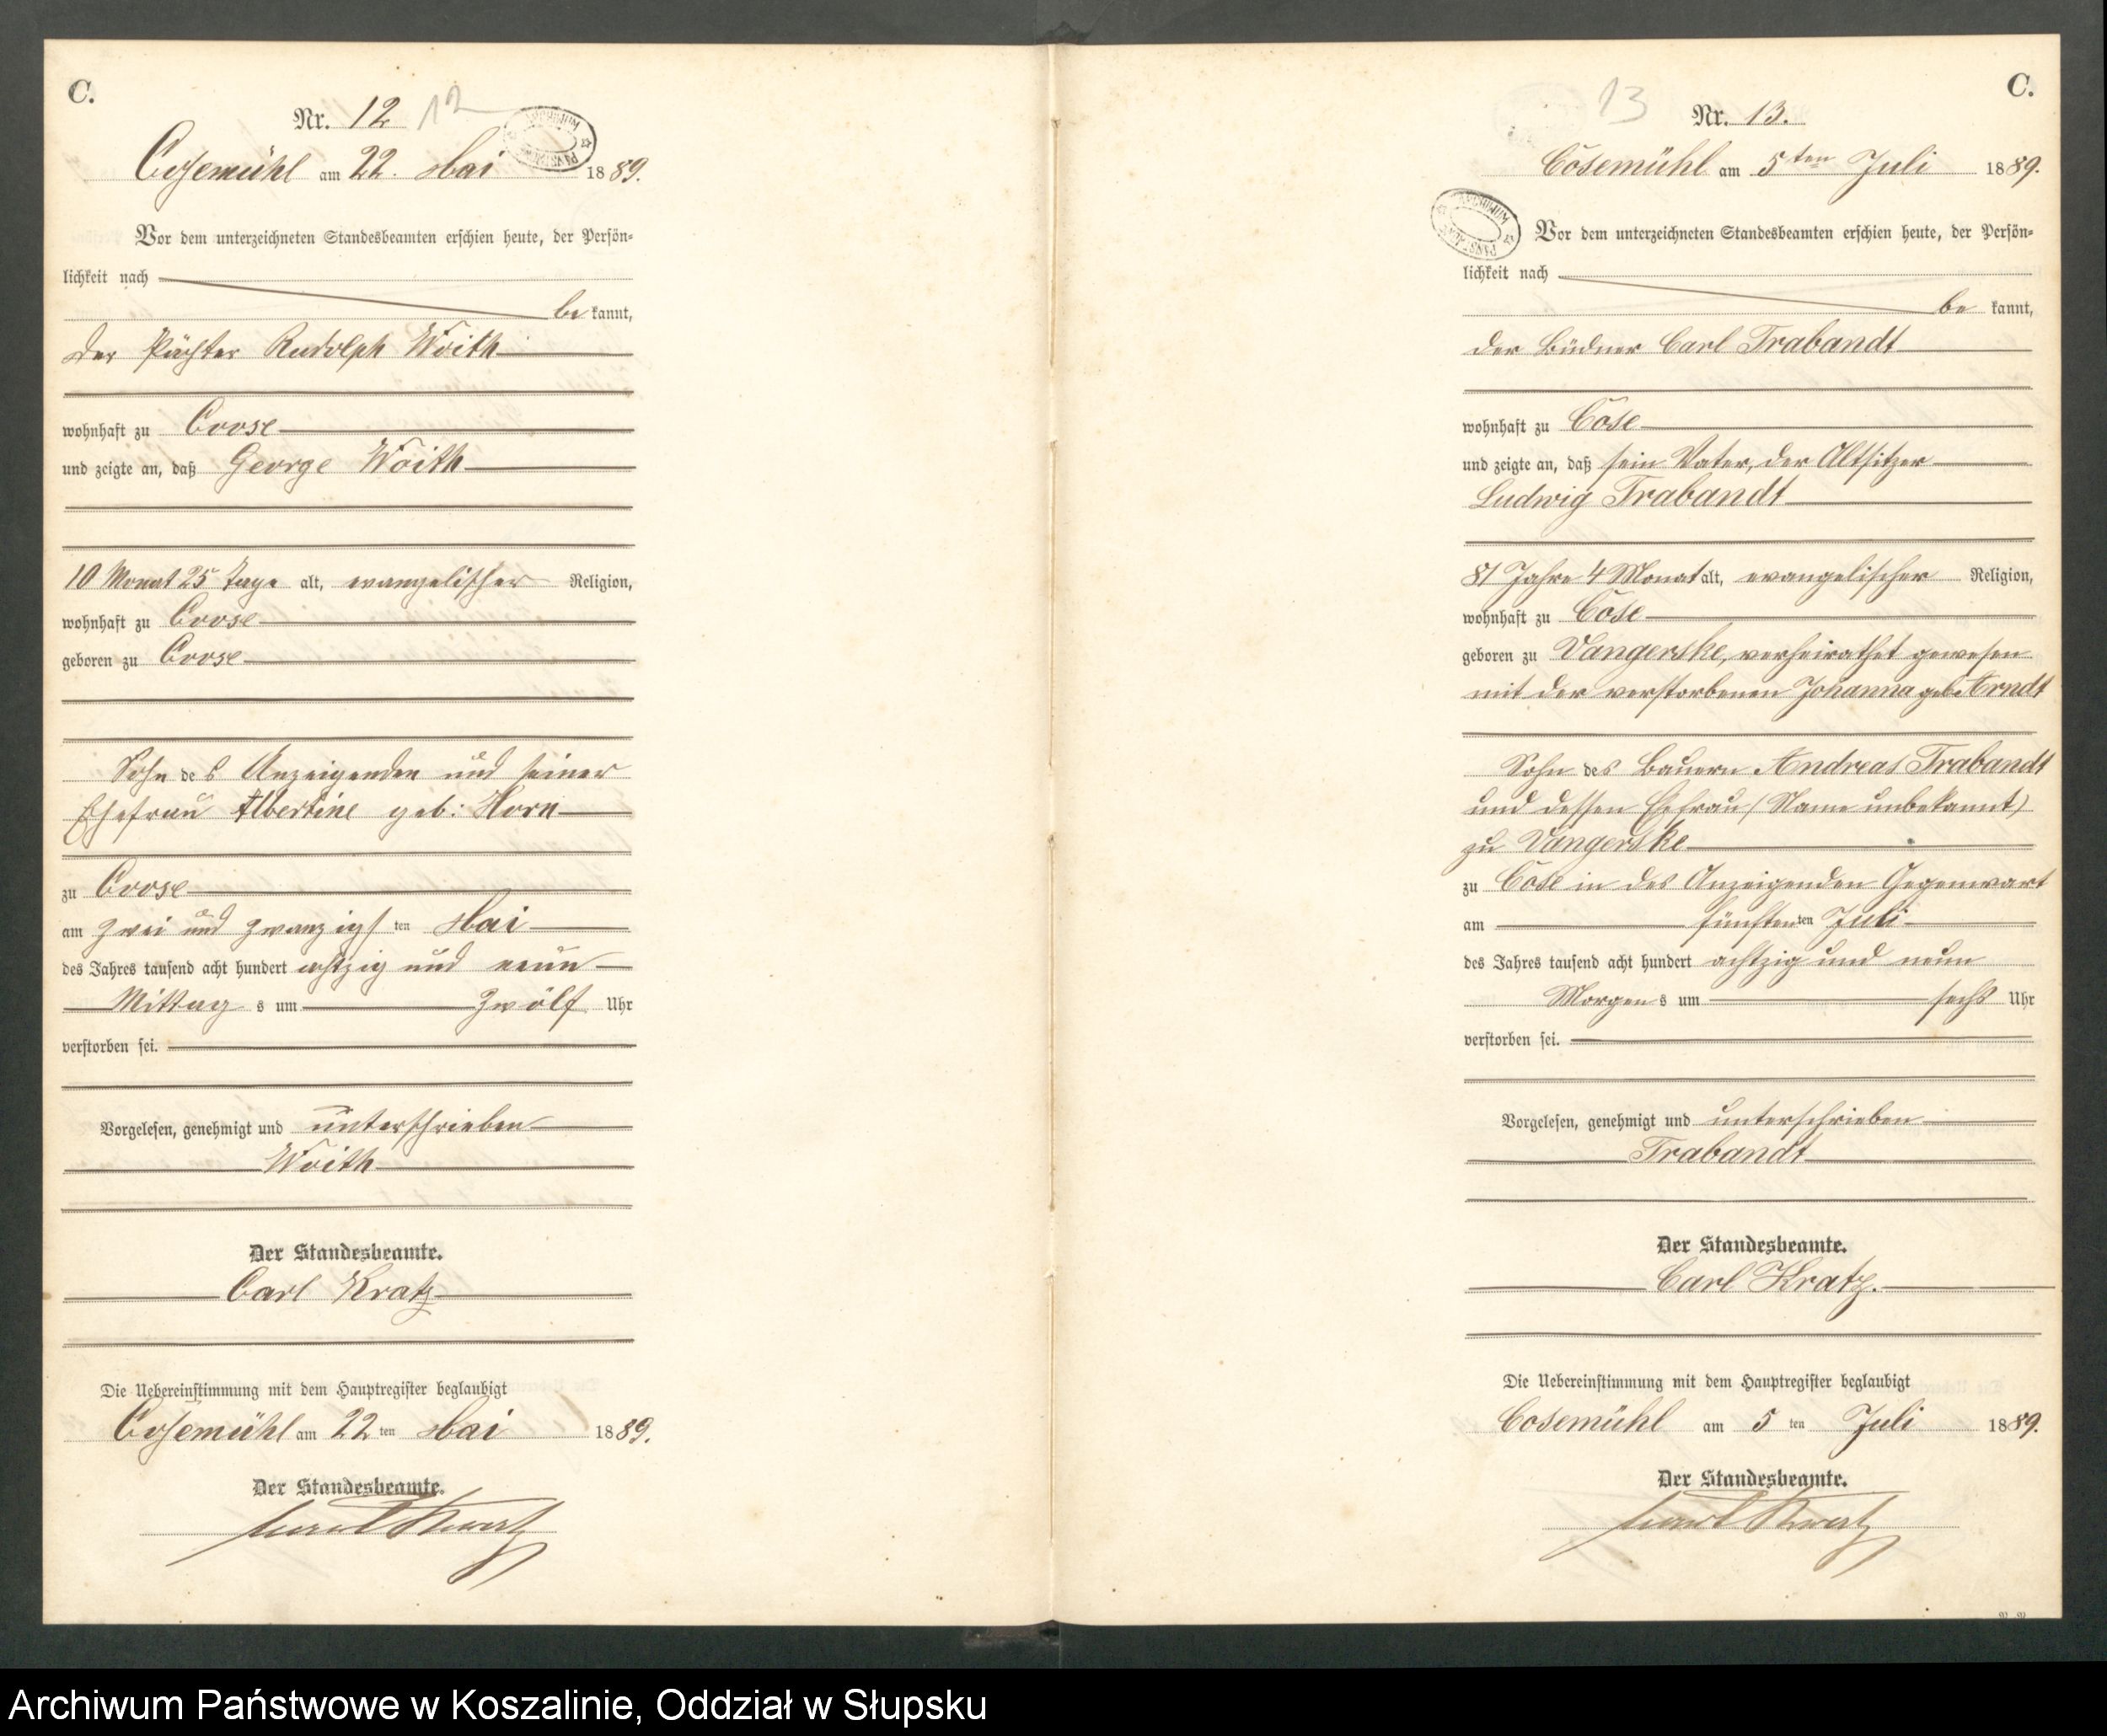 C.
Nr. 12 12
Cosemühl am 22. Mai 1889.
Vor dem unterzeichneten Standesbeamten erschien heute, der Persön-
lichkeit nach
be kannt,
der Pächter Rudolph Woith
wohnhaft zu Coose
und zeigte an, daß George Woith
10 Monat 25 Tage alt, evangelischer Religion,
wohnhaft zu Coose
geboren zu Coose
Sohn des Anzeigenden und seiner
Ehefrau Albertine geb: Horn
zu Coose
am zwei und zwanzigsten Mai
des Jahres tausend acht hundert achtzig und neun
Mittags um zwölf Uhr
verstorben sei.
Vorgelesen, genehmigt und unterschrieben
Woith
Der Standesbeamte.
Carl Kratz
Die Uebereinstimmung mit dem Hauptregister beglaubigt
Cosemühl am 22 ten Mai 1889.
Der Standesbeamte.
Carl Kratz
C.
13 Nr. 13.
Cösemühl am 5ten Juli 1889.
Vor dem unterzeichneten Standesbeamten erschien heute, der Persön-
lichkeit nach
be kannt,
der Büdner Carl Trabandt
wohnhaft zu Cöse
und zeigte an, daß sein Vater, der Altsitzer
Ludwig Trabandt
81 Jahre 4 Monat alt, evangelischer Religion,
wohnhaft zu Cöse
geboren zu Vangerske, verheirathet gewesen
mit der verstorbenen Johanna geb. Arndt
Sohn des Bauern Andreas Trabandt
und dessen Ehefrau (Name unbekannt)
zu Vangerske
zu Cöse in des Anzeigenden Gegenwart
am fünften ten Juli
des Jahres tausend acht hundert achtzig und neun
Morgens um sechs Uhr
verstorben sei.
Vorgelesen, genehmigt und unterschrieben
Trabandt
Der Standesbeamte.
Carl Kratz.
Die Uebereinstimmung mit dem Hauptregister beglaubigt
Cosemühl am 5 ten Juli 1889.
Der Standesbeamte.
Carl Kratz
Archiwum Państwowe w Koszalinie, Oddział w Słupsku